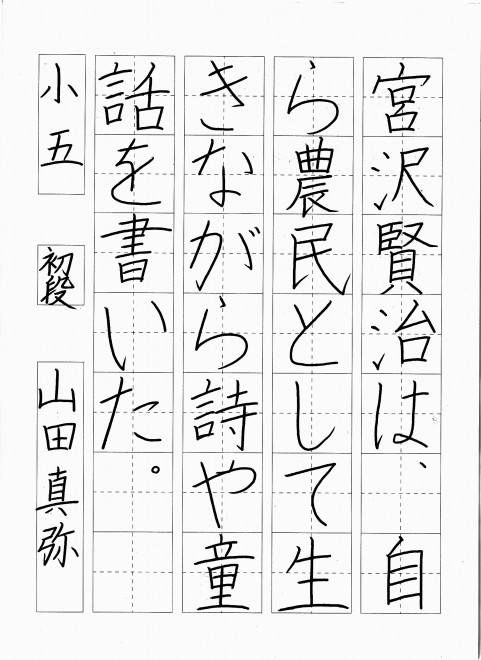 宮沢賢治は、自
ら農民として生
きながら詩や童
話を書いた。
小五 初段 山田真弥